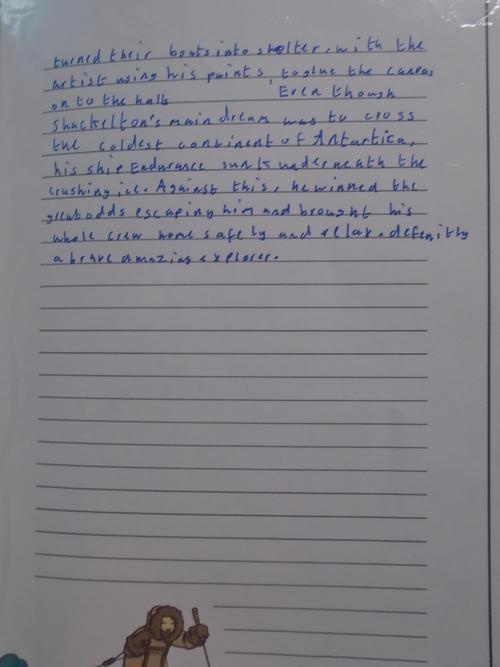 turned their boats into shelter, with the
artist using his paints, to glue the canvas
on to the halls Even though
Shackelton's main dream was to cross
the coldest continent of Antartica,
his ship Endurance sunk underneath the
crushing ice. Against this, he winned the
great odds escaping him and brought his
whole crew home safely and relax. defenitly
a brave amazing explorer.